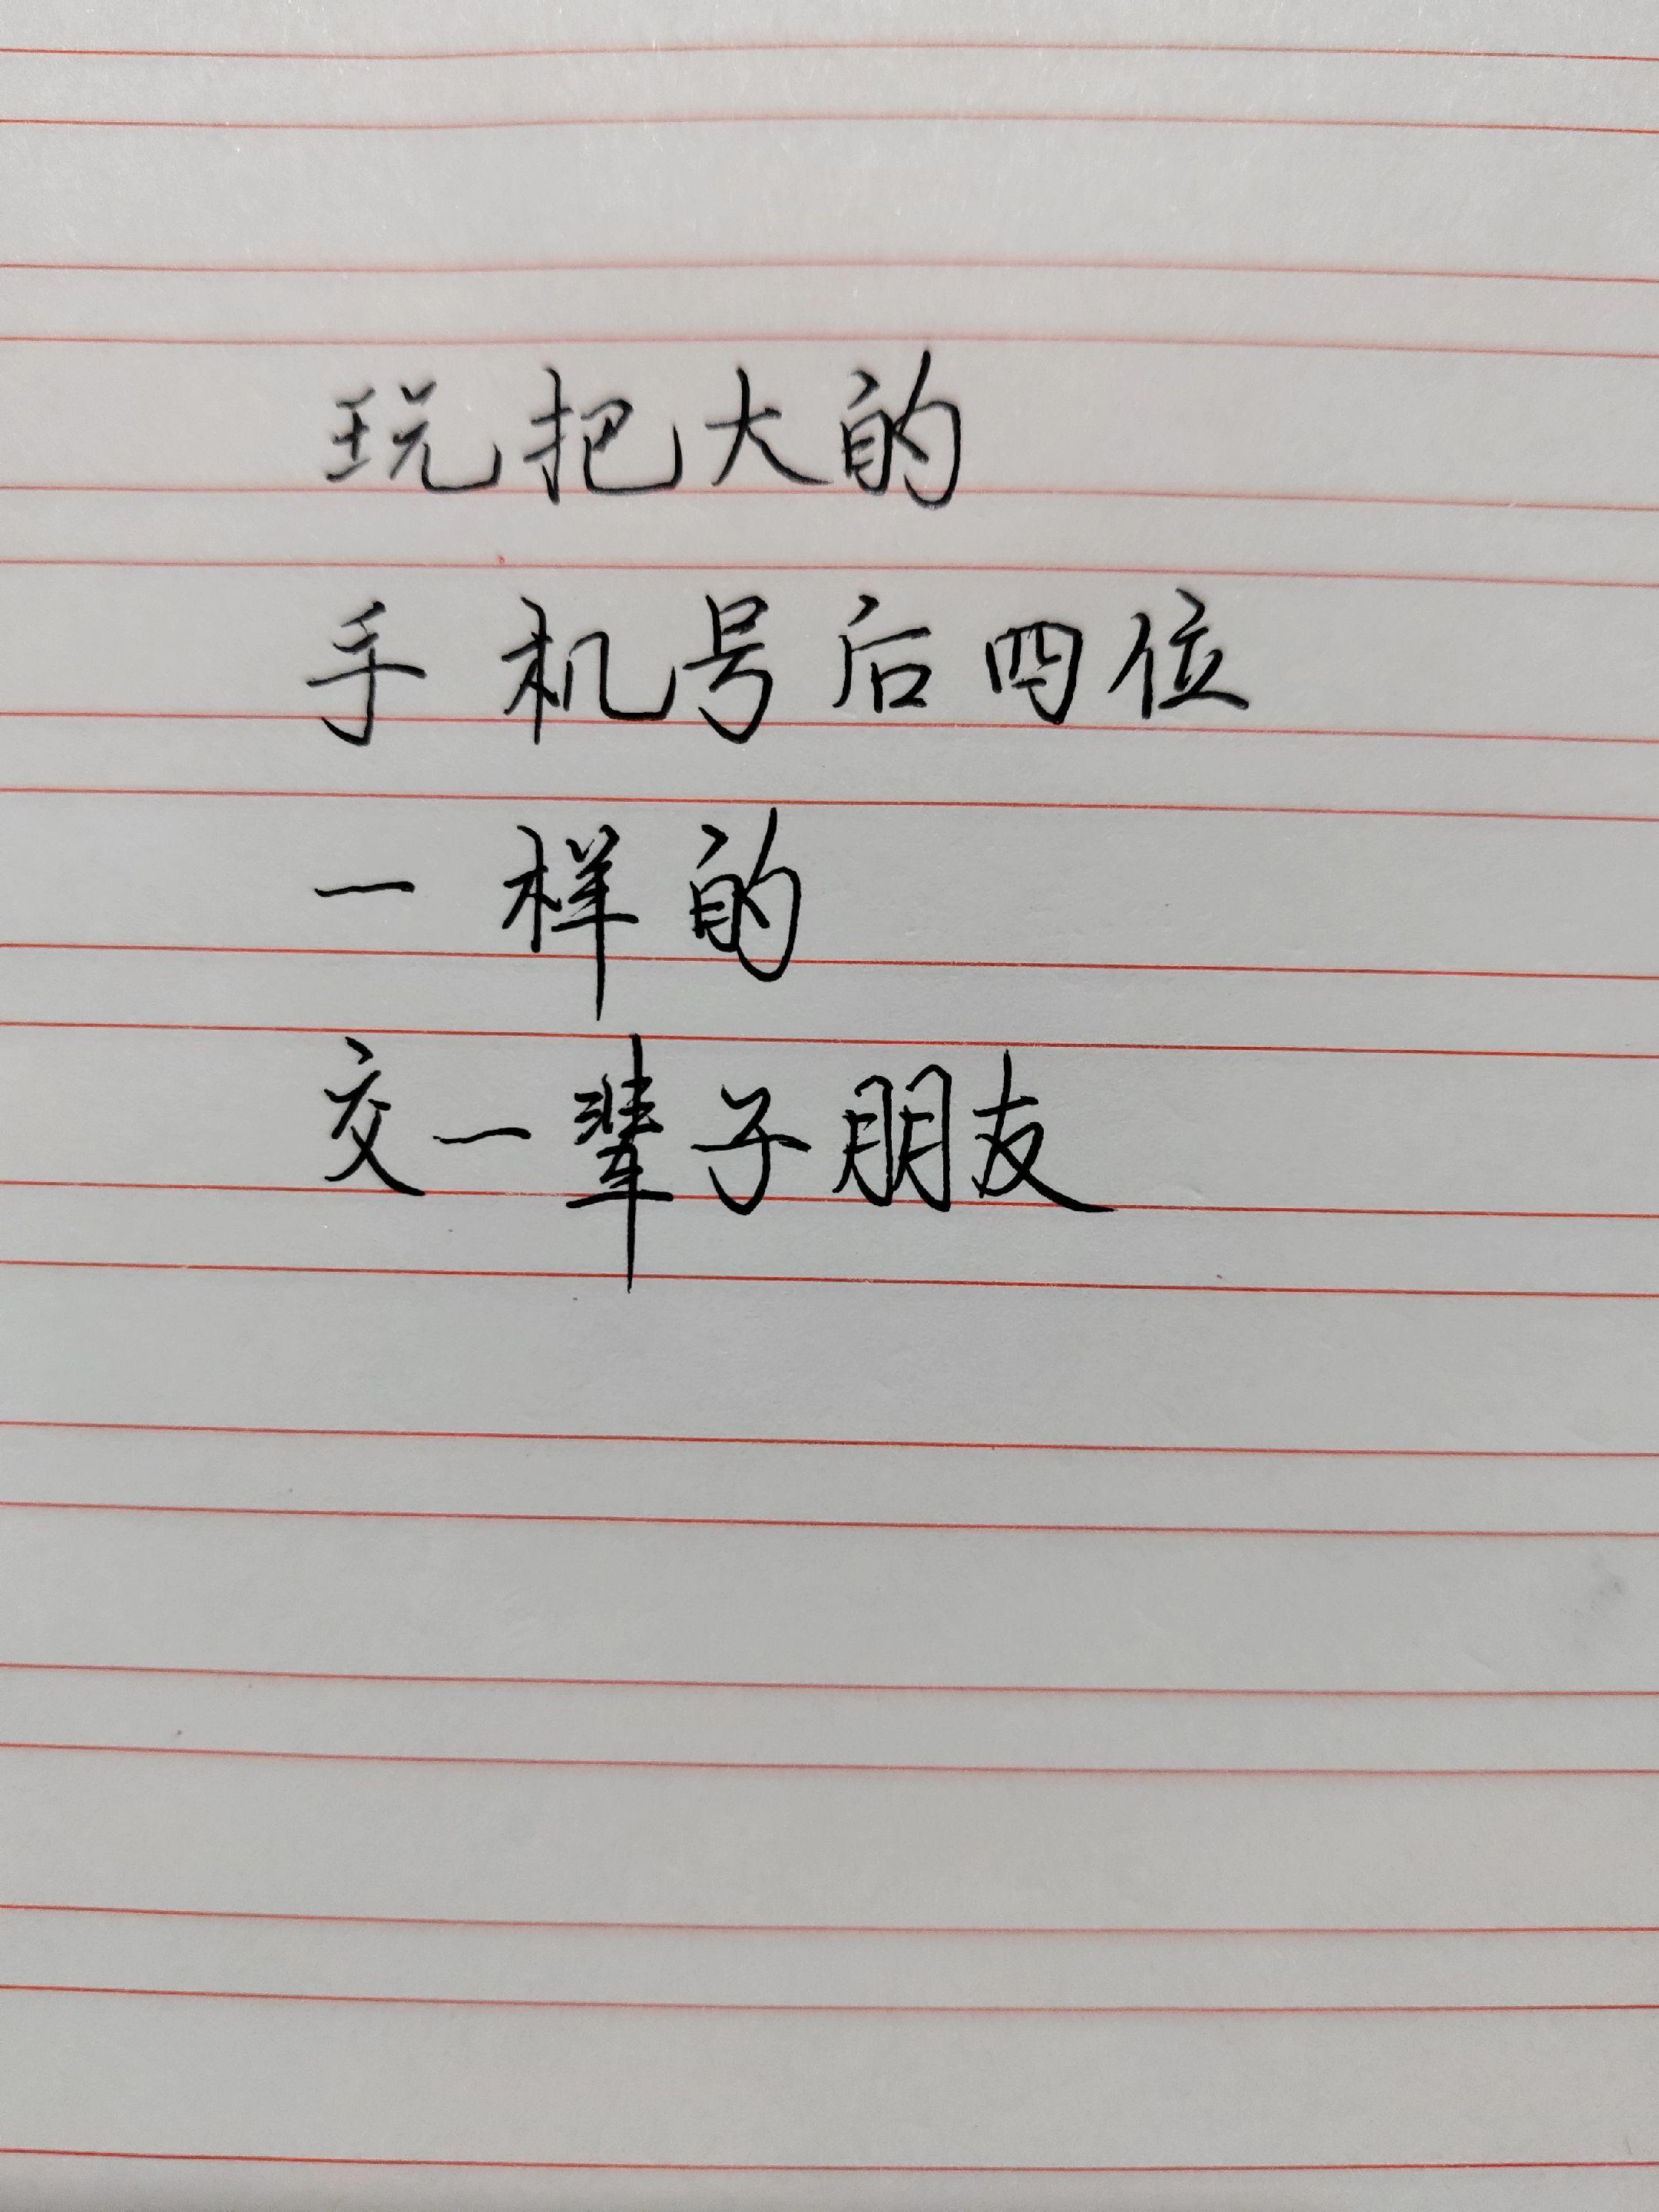 玩把大的
手机号后四位
一样的
交一辈子朋友